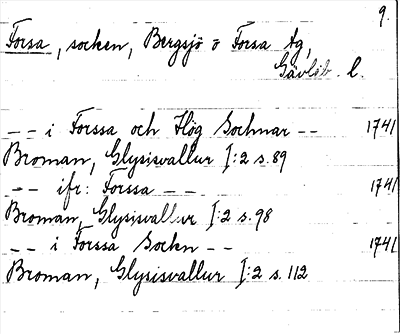 9.
Forsa, socken, Bergsjö o Forsa tg,
Gävleb. l.
-- i Forssa och Hög Sochnar -- 1741
Broman, Glysisvallur I:2 s. 89
-- ifr: Forssa -- 1741
Broman, Glysisvallur I:2 s. 98
-- i Forssa Sockn -- 1741
Broman, Glysisvallur I:2 s. 112